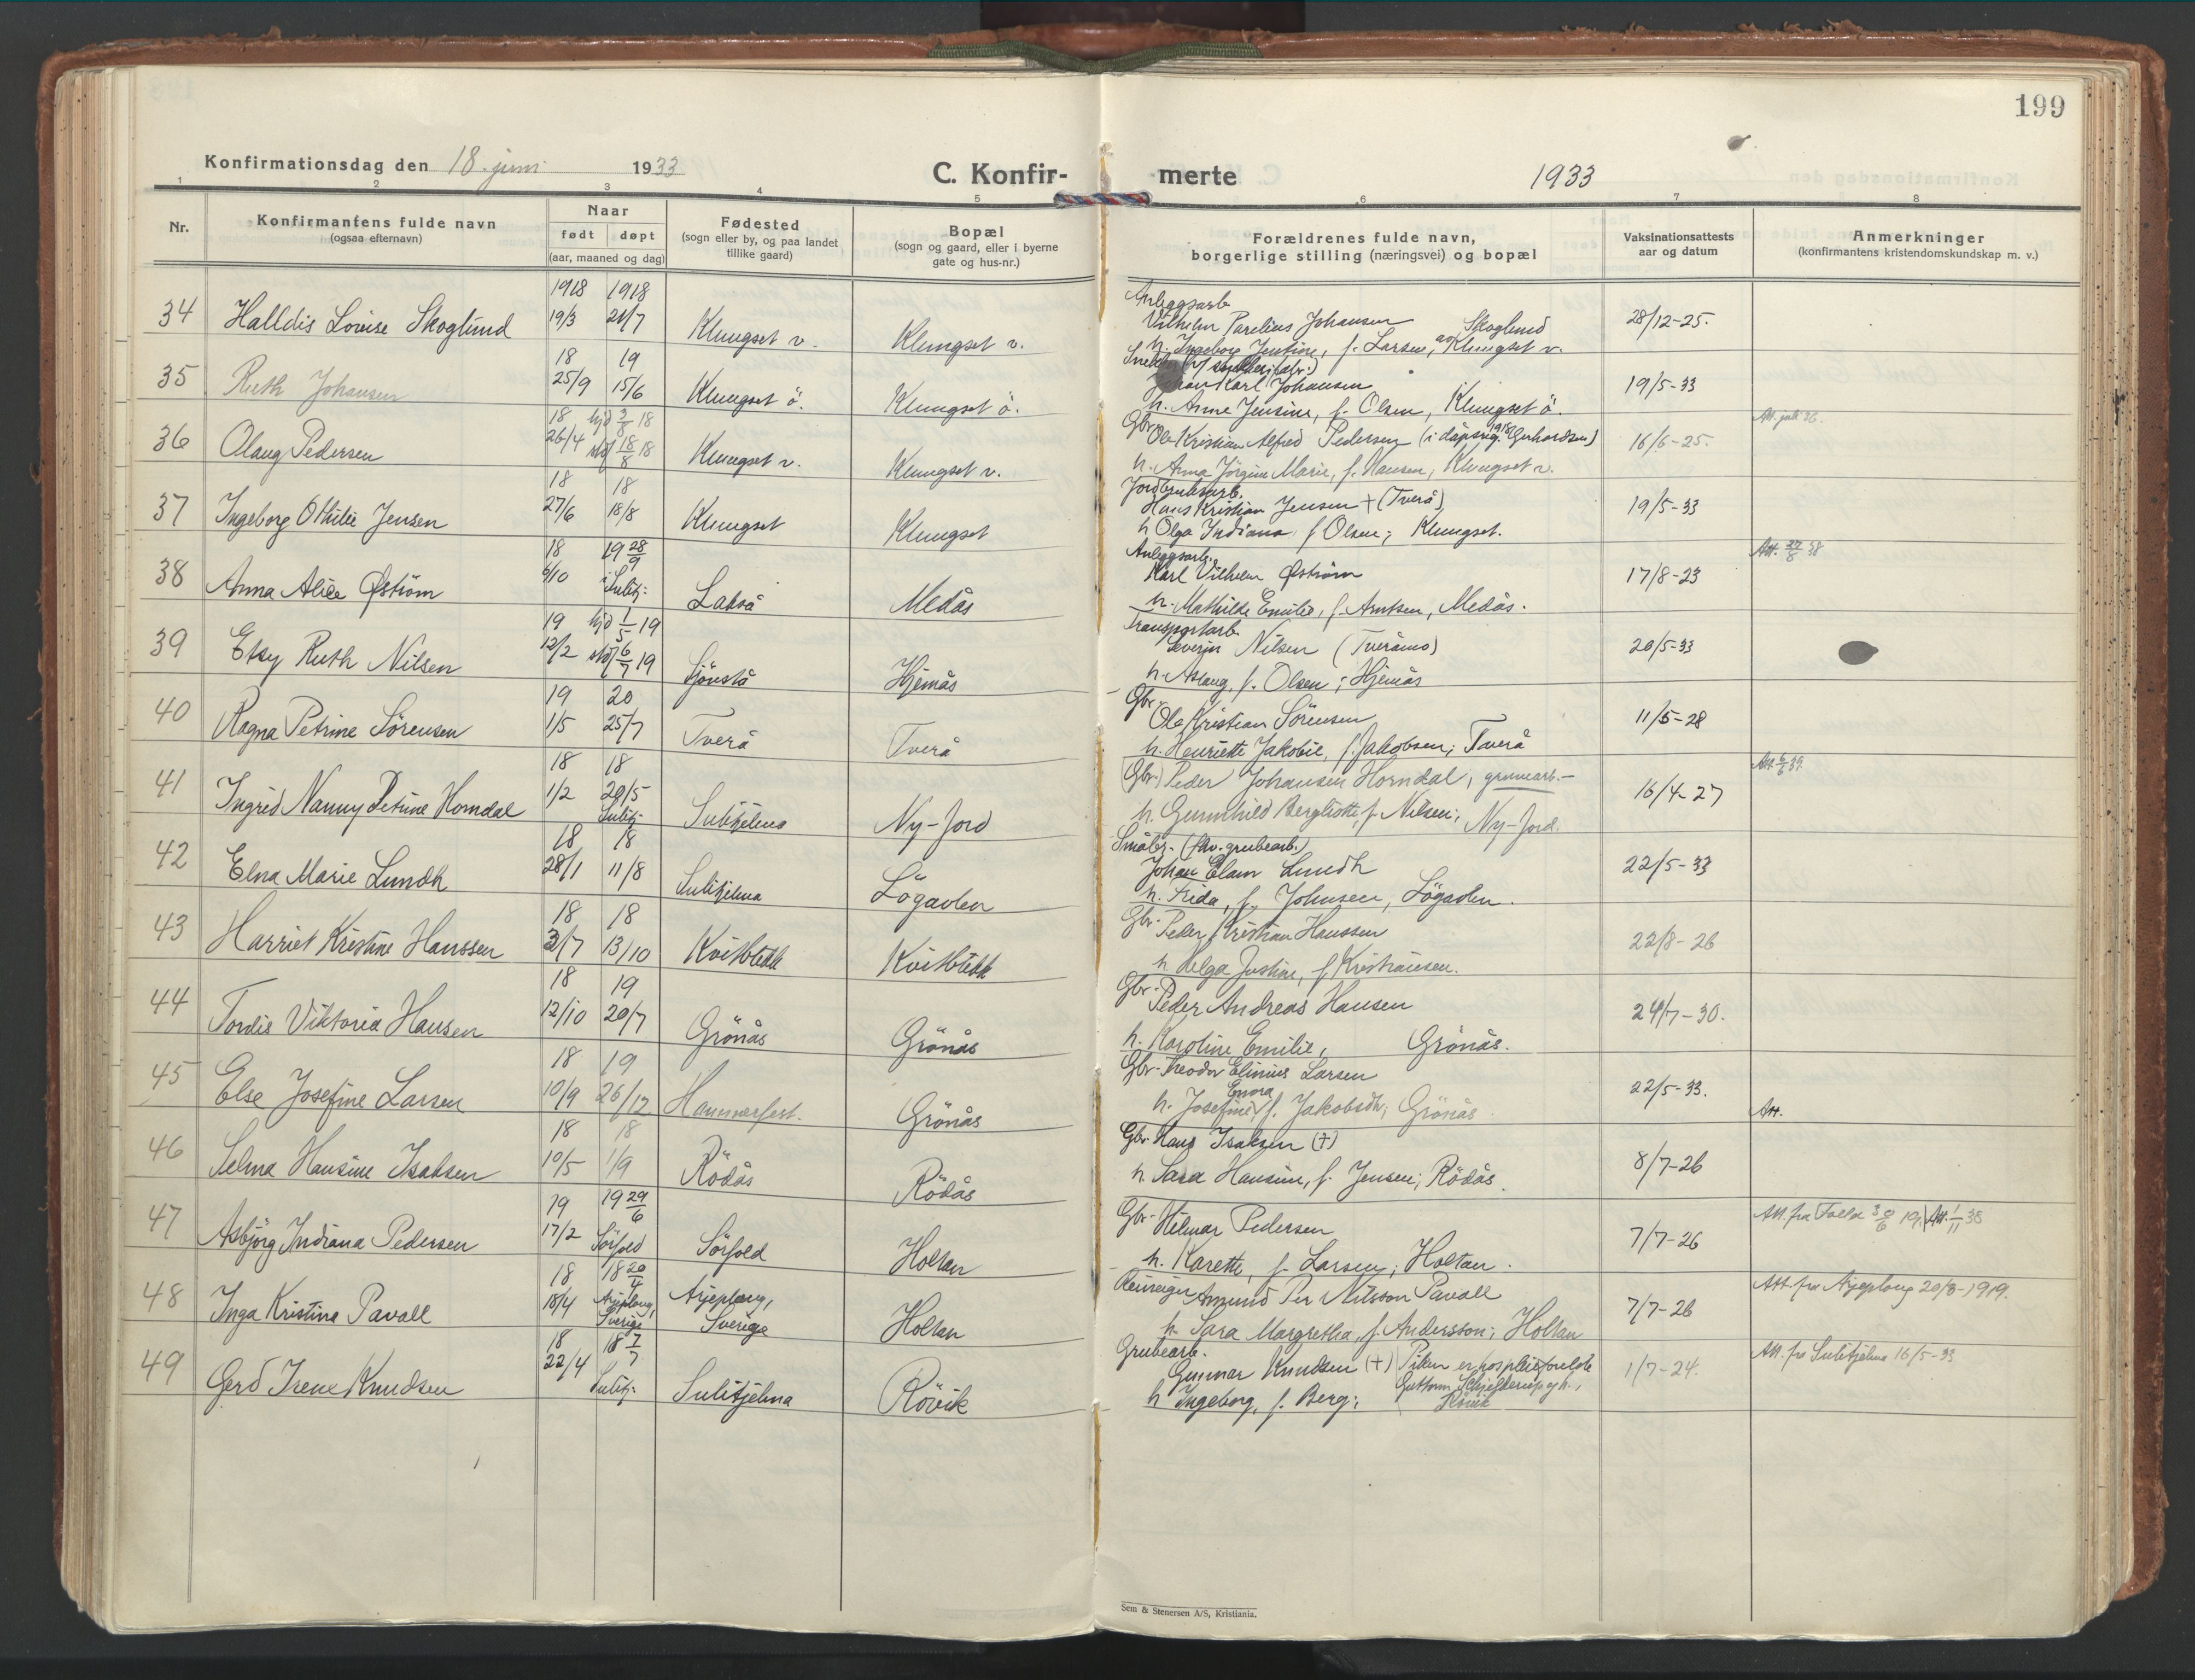 199
Konfirmationsdag den 18. juni 1933 C. Konfir- merte 1933
1 2 3 4 5 6 7 8
Nr. Konfirmantens fulde navn (ogsaa efternavn) Naar født døpt (aar, maaned og dag) Fødested (sogn eller by, og paa landet tillike gaard) Bopæl (sogn og gaard, eller i byerne gate og hus-nr.) Forældrenes fulde navn, borgerlige stilling (næringsvei) og bopæl Vaksinationsattests aar og datum Anmerkninger (konfirmantens kristendomskundskap m. v.)
1918 1918 Anleggsarb.
34 Halldis Lovise Skoglund 19/3 21/7 Klungset v. Klungset v. Vilhelm Parelius Johansen Skoglund 28/12-25.
h. Ingeborg Jentine, f. Larsen, Klungset v.
18 19 Snekker
35 Ruth Johansen 25/9 15/6 Klungset ö. Klungset ö. Johan Karl Johansen 19/5-33
h. Anne Jensine, f. Olsen, Klungset ö.
18 hjd 3/8 18 Gbr. Att. juli 36.
36 Olaug Pedersen 26/4 stdf 18/8 18 Klungset v. Klungset v. Ole Kristian Alfred Pedersen (i dåpsreg. 1918 Gerhardsen) 16/6-25.
h. Anna Jörgine Marie, f. Hansen, Klungset v.
18 18 Jordbruksarb.
37 Ingeborg Othilie Jensen 27/6 18/8 Klungset Klungset Hans Kristian Jensen + (Tverå) 19/5-33
h. Olga Indiana f. Olsen; Klungset.
18 19 28/9 Anleggsarb. Att. 27/8 38
38 Anna Alice Øström 9/10 i Sulitj. Lakså Medås Karl Vilhelm Øström 17/8-23
h. Mathilde Emilie, f. Arntsen, Medås.
19 hjd 1/5 19 Transportarb.
39 Etsy Ruth Nilsen 12/2 stdf 6/7 19 Sjönstå Hjemås Severin Nilsen (Tveråmo) 20/5-33
h. Aslaug, f. Olsen; Hjemås
19 20 Gbr.
40 Ragna Petrine Sörensen 1/5 25/7 Tverå Tverå Ole Kristian Sörensen 11/5-28
h. Henriette Jakobie, f. Jakobsen; Tverå
18 18 (Gbr.) Peder Johansen Horndal, gruvearb. Att. 6/6 39.
41 Ingrid Nanny Petrine Horndal 1/2 20/5 Sulitj. Sulitjelma Ny-Jord h. Gunnhild Bergliotte, f. Nilsen; Ny-Jord. 16/4-27
18 18 Småbr. (fhv. grubearb.)
42 Elna Marie Lundh 28/1 11/8 Sulitjelma Lögavlen Johan Elam Lundh 22/5-33
h. Frida, f. Johnsen, Lögavlen.
18 18 Gbr.
43 Harriet Kristine Hanssen 3/7 13/10 Kvitblikk Kvitblikk Peder Kristian Hanssen 22/8-26
h. Helga Justine, f. Kristiansen.
18 19 Gbr.
44 Tordis Viktoria Hansen 12/10 20/7 Grönås Grönås Peder Andreas Hansen 24/7-30.
h. Karoline Emilie, Grönås.
18 19 Gbr. Theodor Elinius Larsen
45 Else Josefine Larsen 10/9 26/12 Hammerfest. Grönås h. Josefine Enora f. Jakobsdtr, Grönås 22/5-33.
18 18 Gbr. Hans Isaksen (+) Att.
46 Selma Hansine Isaksen 10/5 1/9 Rödås Rödås h. Sara Hansine, f. Jensen; Rödås. 8/7-26
19 19 29/6 Gbr. Hilmar Pedersen Att. fra Folda 30/6 19, Att. 1/11 38
47 Asbjörg Indiana Pedersen 17/2 Sörfold Sörfold Holtan h. Karette, f. Larsen; Holtan. 7/7-26
18 18 20/4 Reineier Amund Per Nilsson Pavall Att. fra Arjeplong 20/8-1919.
48 Inga Kristina Pavall 18/4 Arjeplong, Sverige Arjeplong, Sverige Holtan h. Sara Margretha, f. Andersson; Holtan 7/7-26
18 18 7/7 Grubearb. Att. fra Sulitjelma 16/5-33
49 Gerd Irene Knudsen 22/4 Sulitj. Sulitjelma Rövik Gunnar Knudsen (+) Piken er hos pleieforeldre 1/7-24.
h. Ingeborg, f. Berg; Guttorm Schjelderup og h., Rövik
Sem & Stenersen A/S, Kristiania.